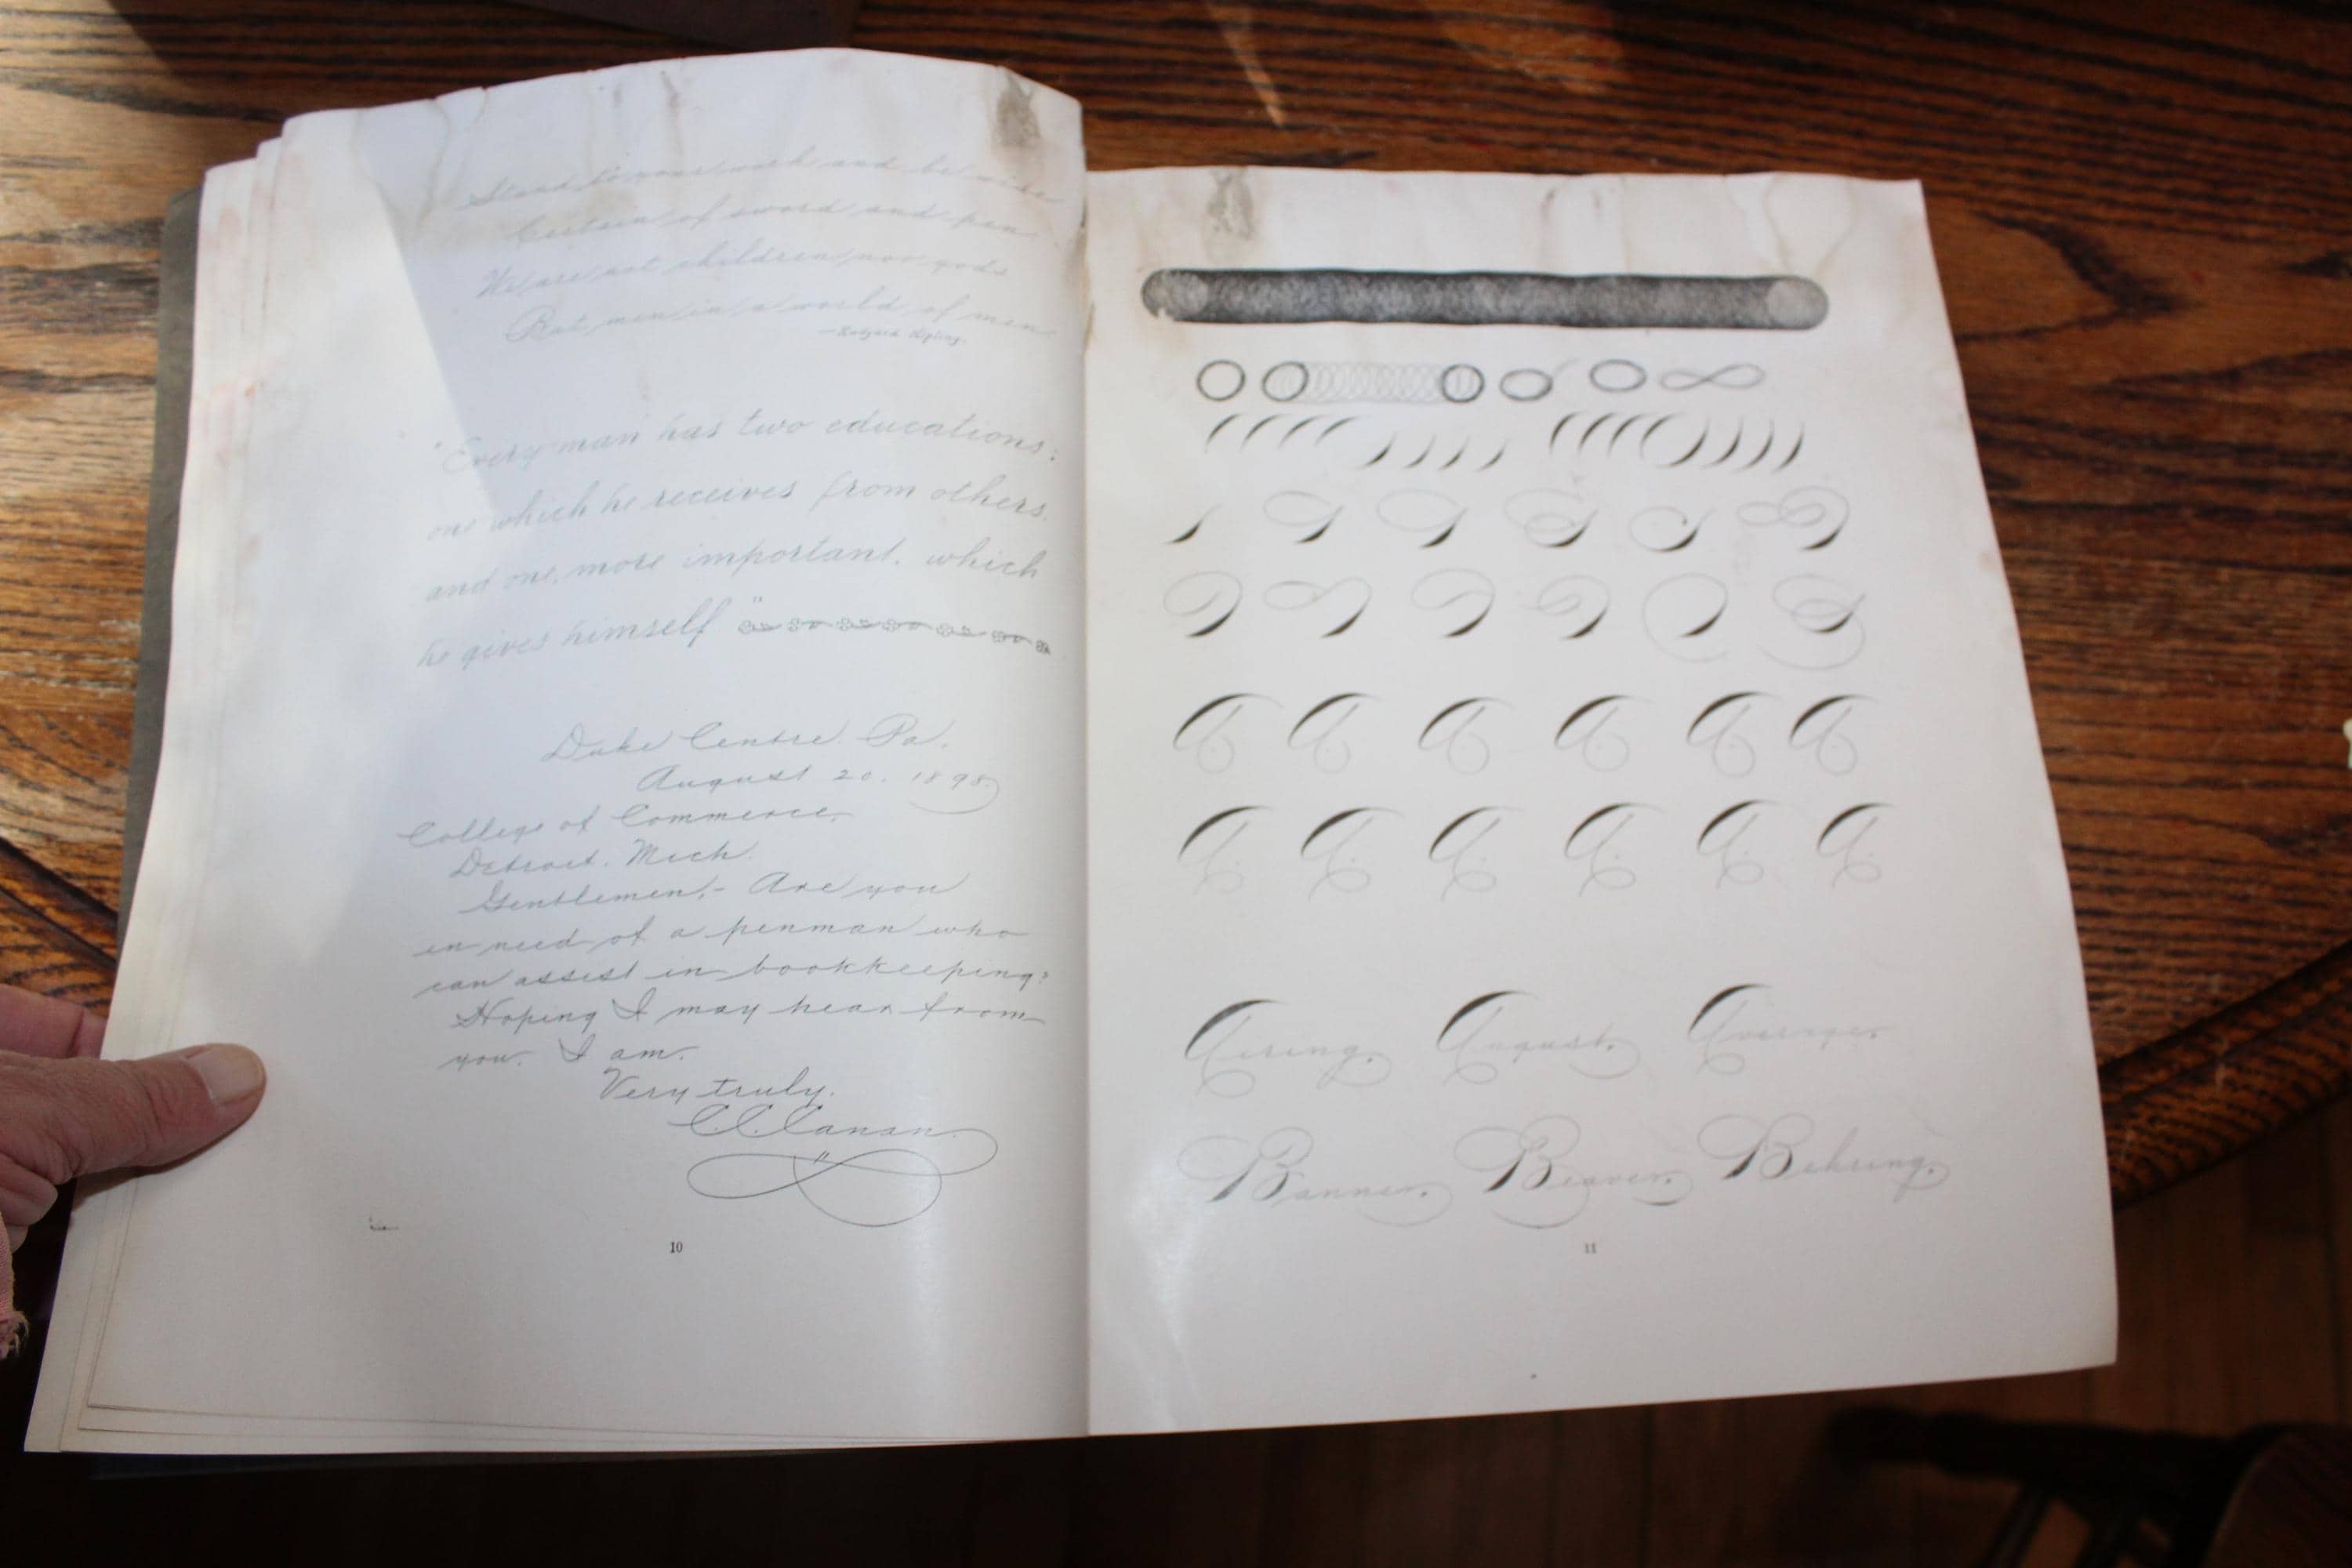 Stand to your work and be wise
Certain of sword and pen
We are not children nor gods
But men in a world of men
—Rudyard Kipling.
"Every man has two educations:
one which he receives from others.
and one, more important, which
he gives himself"
Duke Centre. Pa.
August 20. 1898.
College of Commerce,
Detroit. Mich.
Gentlemen,- Are you
in need of a penman who
can assist in bookkeeping?
Hoping I may hear from
you. I am.
Very truly.
C.C.Canan.
10
A A A A A A
A A A A A A
Airing. August. Average.
Banner. Beaver. Behring.
11